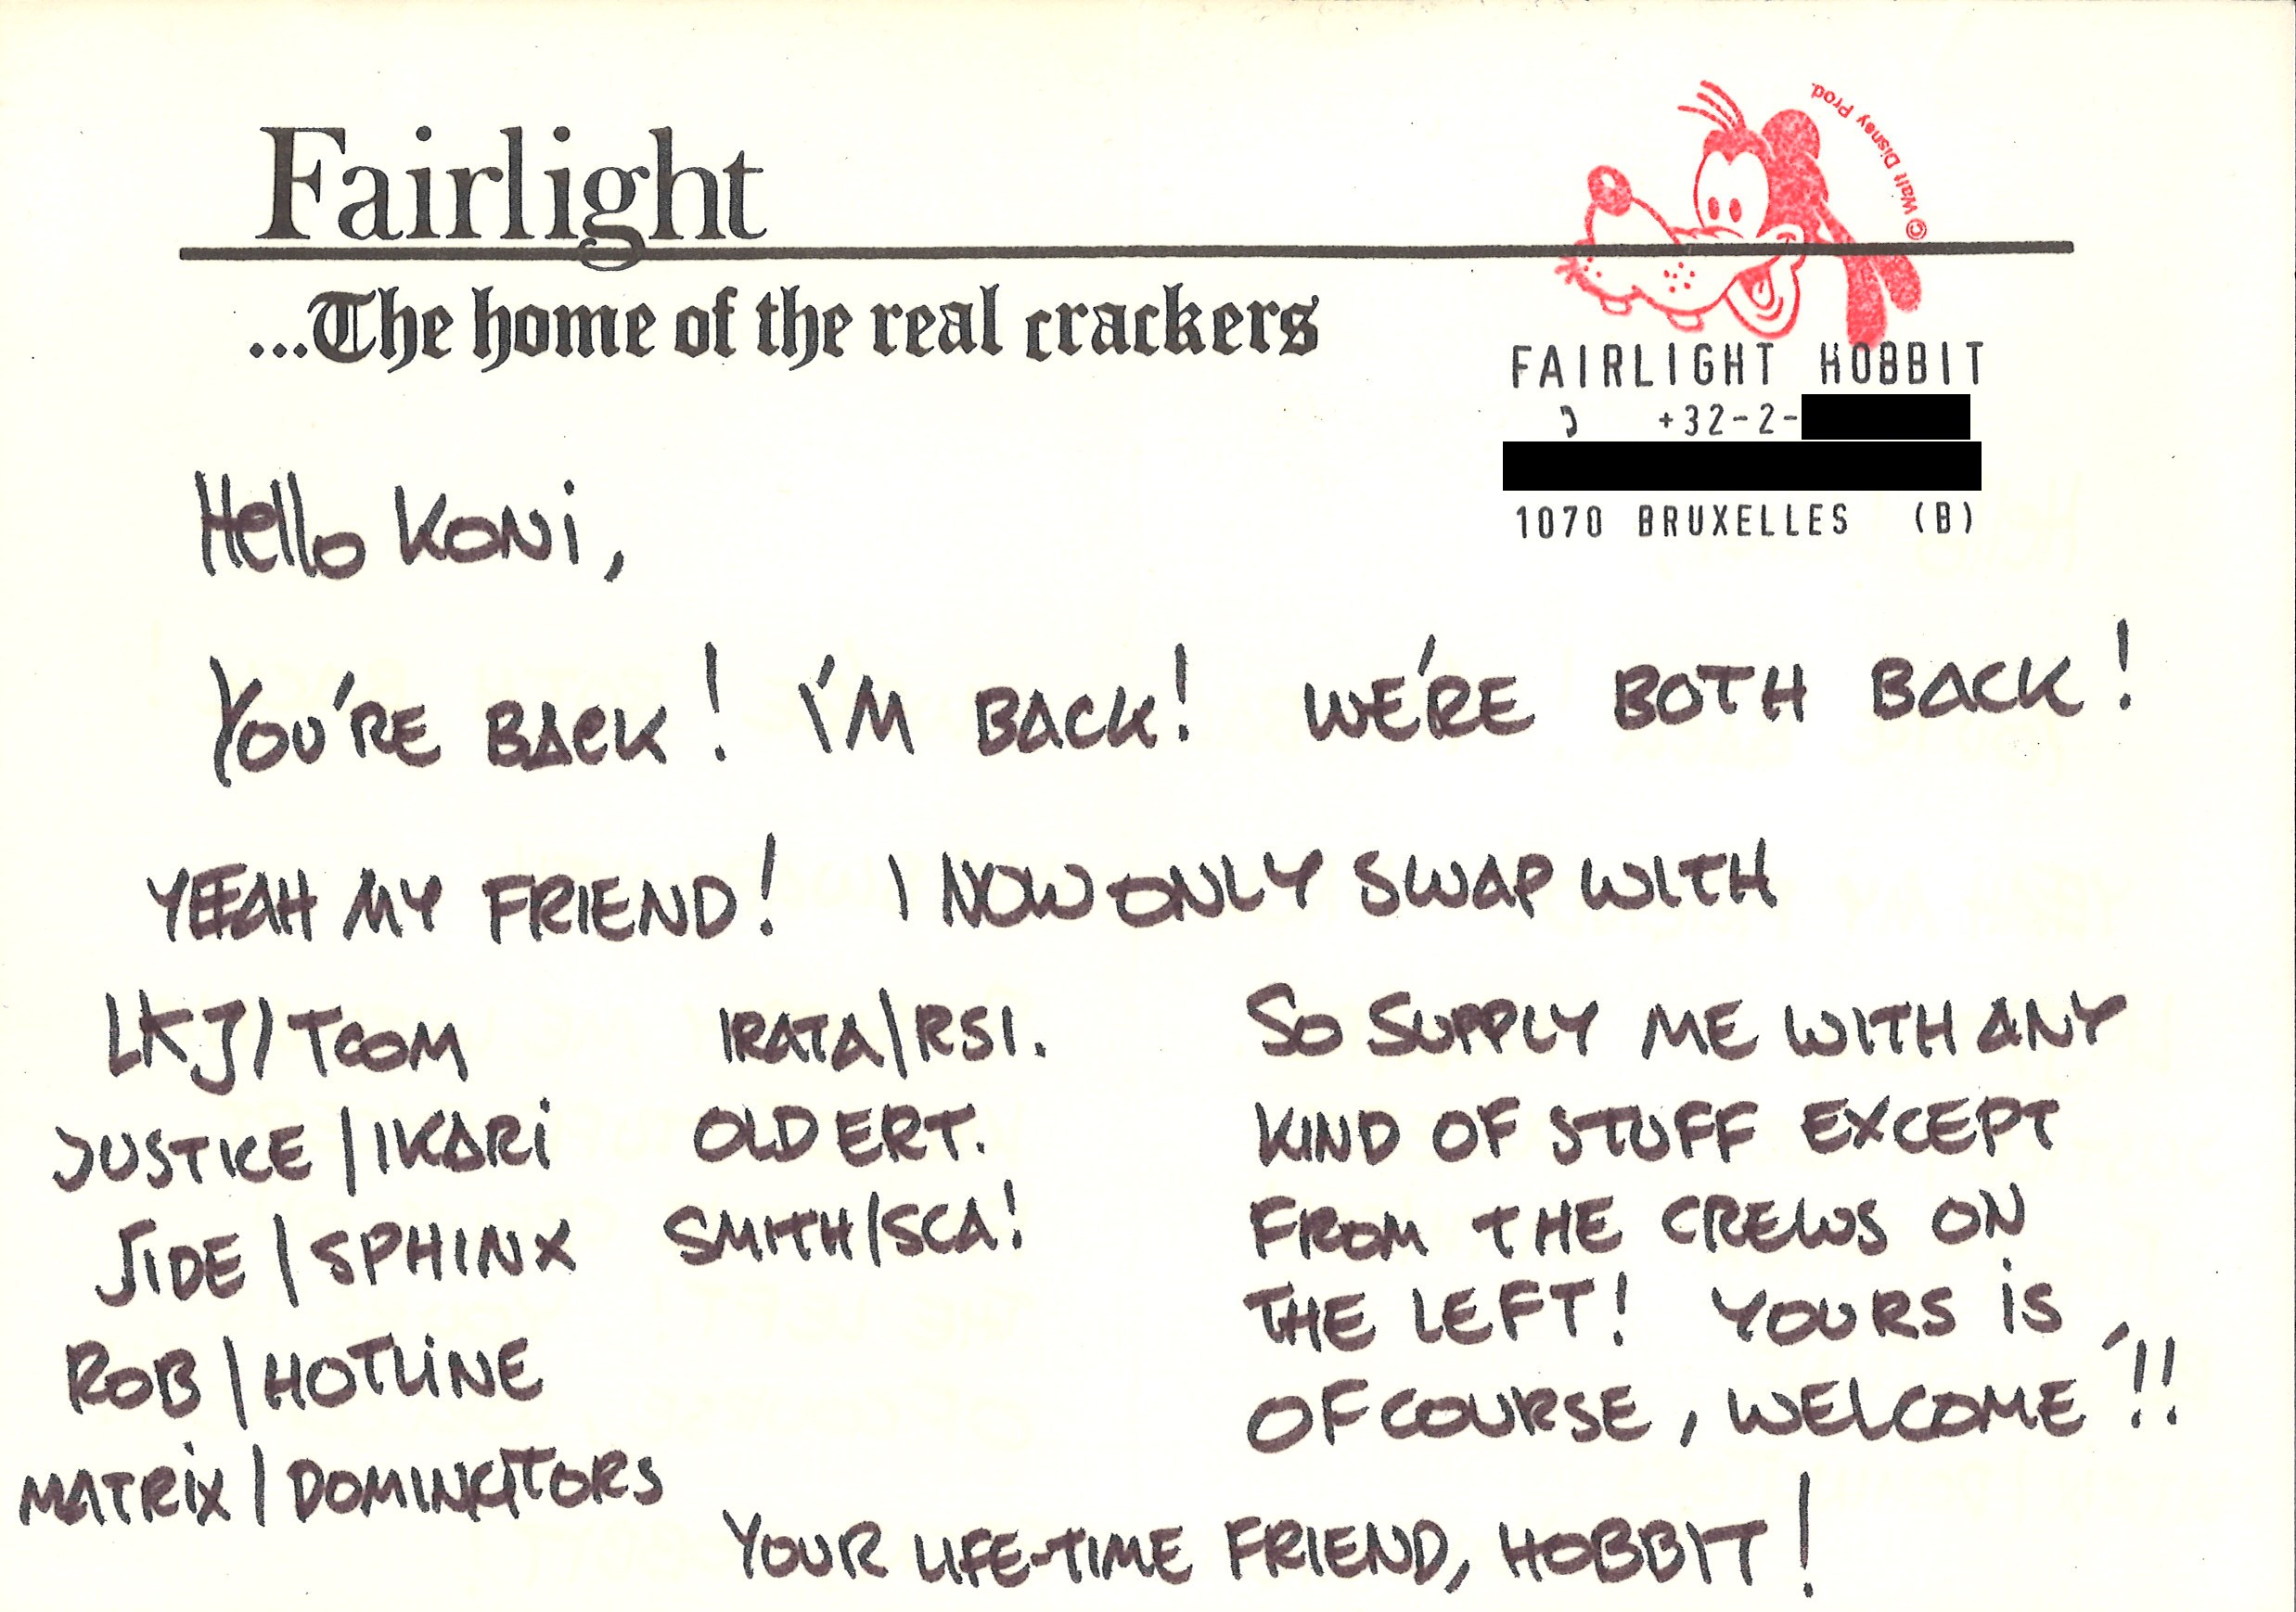 Fairlight
...The home of the real crackers
© Walt Disney Prod.
FAIRLIGHT HOBBIT
+32-2-
1070 BRUXELLES (B)
Hello Koni,
YOU'RE BACK! I'M BACK! WE'RE BOTH BACK!
YEEAH MY FRIEND! I NOW ONLY SWAP WITH
LKJ/TCOM
JUSTICE/IKARi
JIDE/SPHINX
ROB/HOTLINE
MATRIX/DOMINATORS
IRATA/RSI.
OLD ERT.
SMITH/SCA!
SO SUPPLY ME WITH ANY
KIND OF STUFF EXCEPT
FROM THE CREWS ON
THE LEFT! YOURS IS,
OF COURSE, WELCOME!!!
YOUR LIFE-TIME FRIEND, HOBBIT!